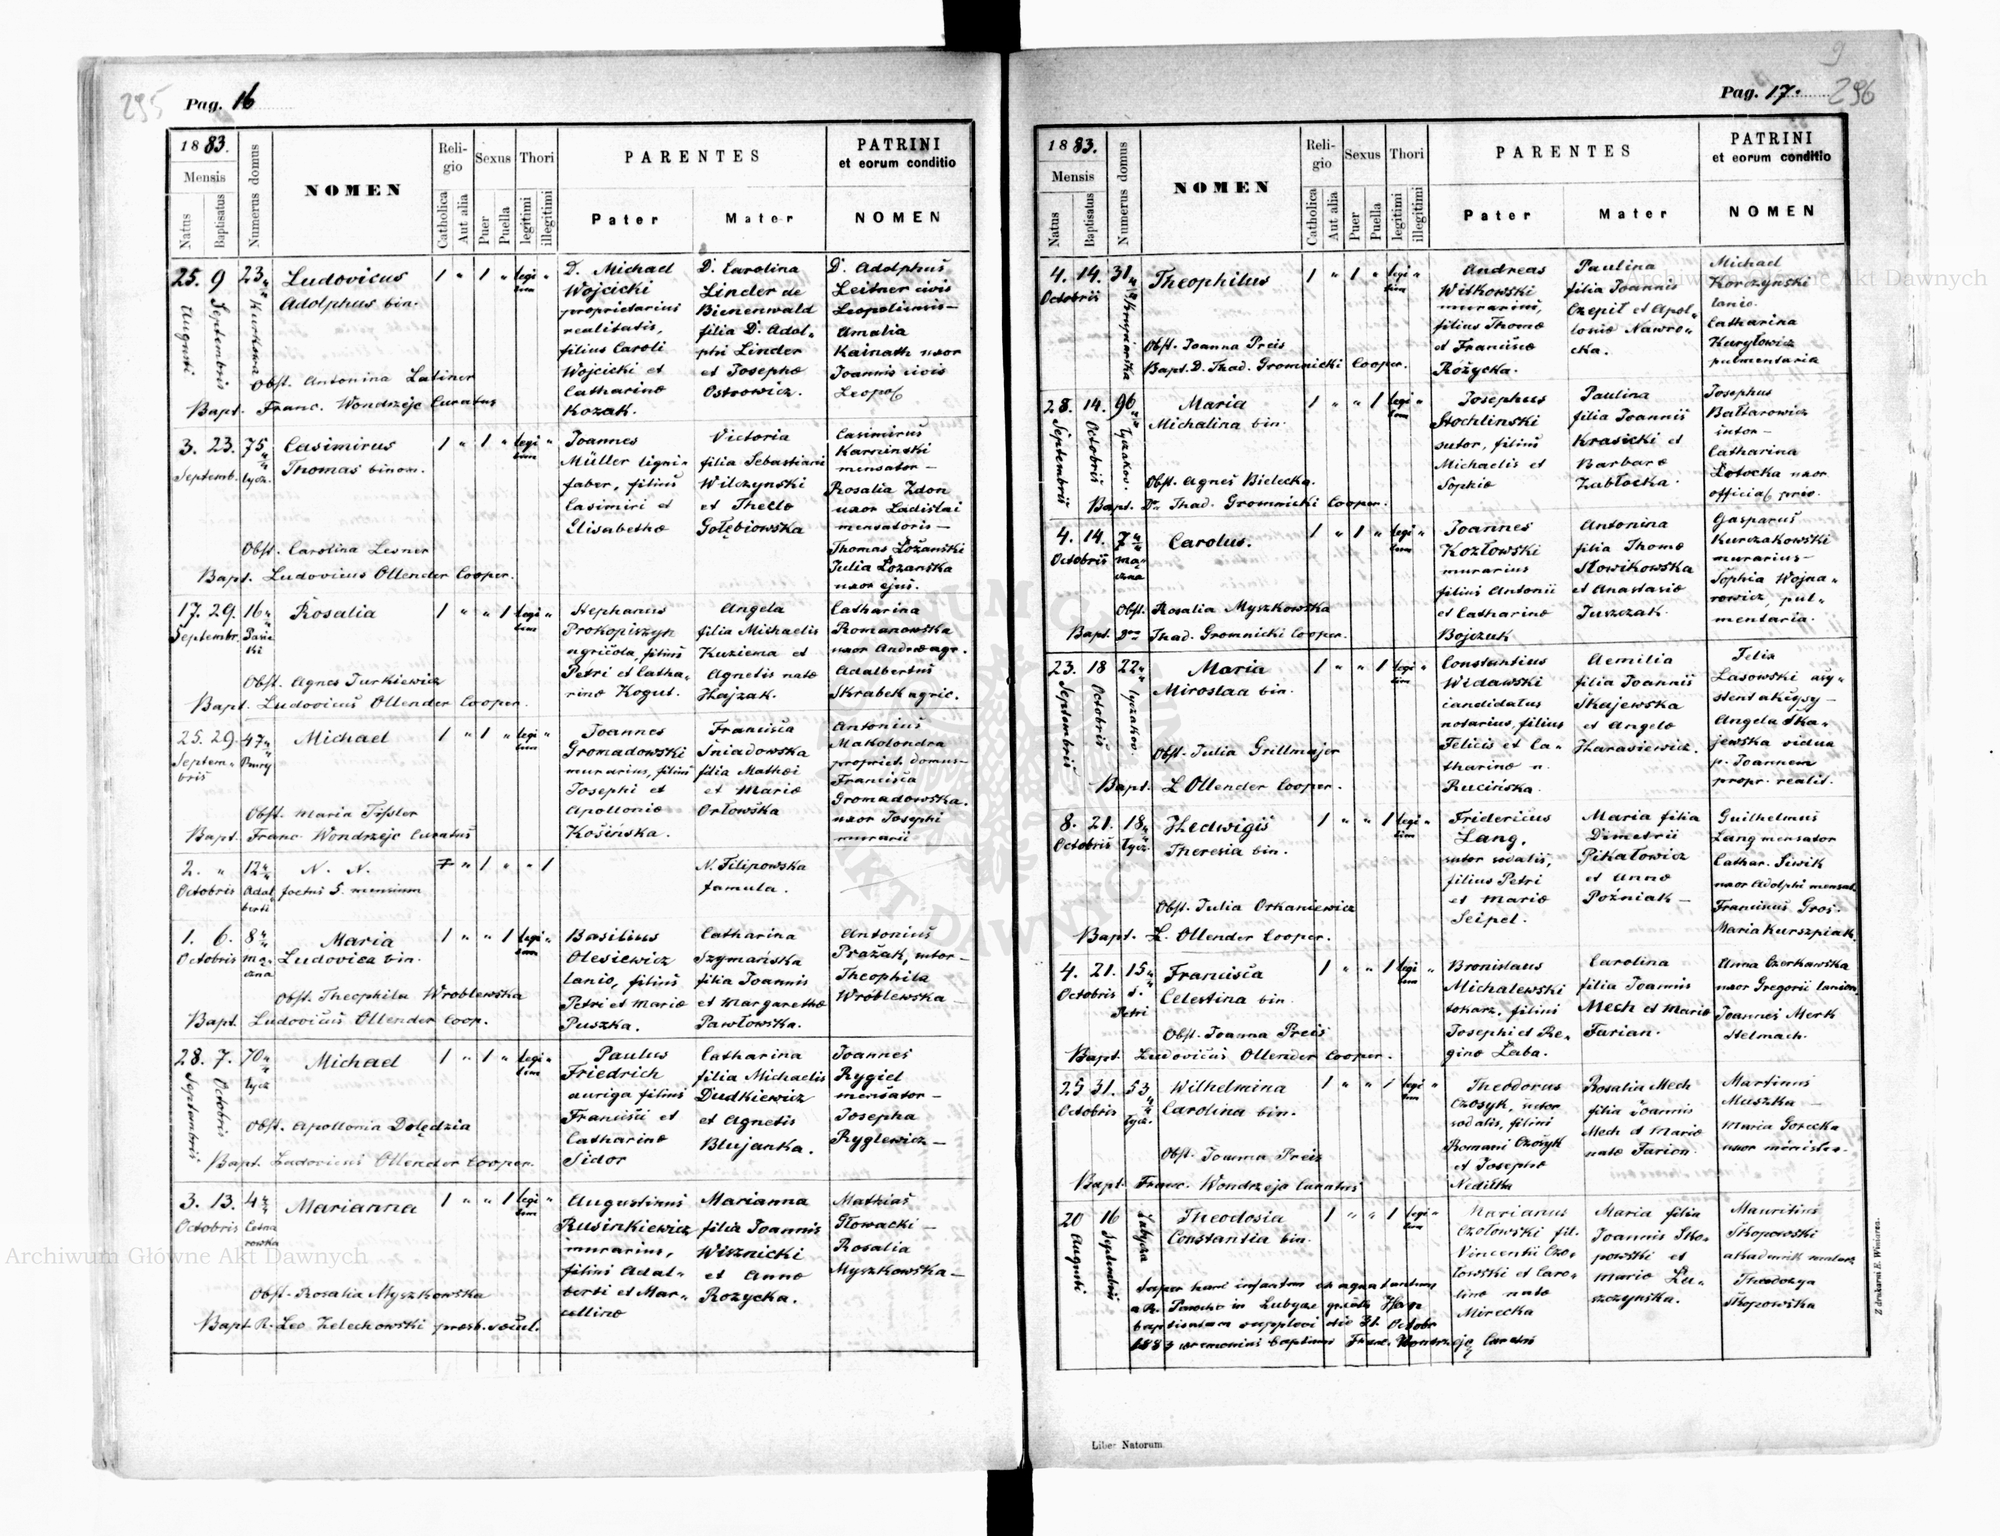 295
Pag. 16
1883.
Mensis
Natus
Baptisatus
Numerus domus
NOMEN
Reli-
gio
Catholica
Aut alia
Sexus
Puer
Puella
Thori
legitimi
illegitimi
PARENTES
Pater
Mater
PATRINI
et eorum conditio
NOMEN
25. Augusti
9 Septembris
23 Kurkowa
Ludovicus
Adolphus bin.
Obst. Antonina Latiner
Bapt. Franc. Wondrzejc Curatus
1 " 1 " legi "
tim
D. Michael
Wojcicki
proprietarius
realitatis,
filius Caroli
Wojcicki et
Catharinæ
Kozak.
D. Carolina
Linder de
Bienenwald
filia D. Adol-
phi Linder
et Josephæ
Ostrowicz.
D. Adolphus
Leitner civis
Leopoliensis —
Amalia
Kainath uxor
Joannis civis
Leopol
3. 23. 75
Septemb. Lycz.
Casimirus
Thomas binom.
Obst. Carolina Lesner
Bapt. Ludovicus Ollender Cooper.
1 " 1 " legi "
tim
Joannes
Müller ligni-
faber, filius
Casimiri et
Elisabethæ
Victoria
filia Sebastiani
Wilczynski
et Theclæ
Gołębiowska
Casimirus
Karminski
mensator —
Rosalia Zdon
uxor Ladislai
mensatoris —
Thomas Łożanski
Julia Łozanska
uxor ejus.
17. 29. 16
Septembr. Pasie
ki
Rosalia
Obst. Agnes Jurkiewicz
Bapt. Ludovicus Ollender Cooper.
1 " " 1 legi "
tim
Stephanus
Prokopiszyn
agricola, filius
Petri et Catha-
rinæ Kogut.
Angela
filia Michaelis
Kuziema et
Agnetis natæ
Hajzak.
Catharina
Romanowska
uxor Andreæ agr.
Adalbertus
Skrabek agric.
25. 29. 47
Septem-
bris
Michael
Obst. Maria Tissler
Bapt. Franc. Wondrzejc Curatus
1 " 1 " legi "
tim
Joannes
Gromadowski
murarius, filius
Josephi et
Apolloniæ
Kosińska.
Francisca
Śniadowska
filia Mathæi
et Mariæ
Orłowska
Antonius
Makolondra
propriet. domus —
Francisca
Gromadowska.
uxor Josephi
murarii
2. " 12
Octobris Adal
berti
N. N.
foetus 5. mensium
" 1 " " 1
N. Filipowska
famula.
1. 6. 8
Octobris Mą-
czna
Maria
Ludovica bin.
Obst. Theophila Wroblewska
Bapt. Ludovicus Ollender Coop.
1 " " 1 legi "
tim
Basilius
Olesiewicz
lanio, filius
Petri et Mariæ
Puszka.
Catharina
Szymańska
filia Joannis
et Margarethæ
Pawłowska.
Antonius
Prażak, sutor —
Theophila
Wróblewska —
28. Septembris
7. Octobris
70 Lycz
Michael
Obst. Apollonia Dolędzia
Bapt. Ludovicus Ollender Cooper.
1 " 1 " legi "
tim
Paulus
Friedrich
auriga filius
Francisci et
Catharinæ
Sidor
Catharina
filia Michaelis
Dudkiewicz
et Agnetis
Blujanka.
Joannes
Rygiel
mensator —
Josepha
Ryglewicz —
3. 13. 4
Octobris Cetna
rowska
Marianna
Obst. Rosalia Myszkowska
Bapt. R. Leo Zelechowski presb. sæcul.
1 " " 1 legi "
tim
Augustinus
Rusinkiewicz
murarius,
filius Adal-
berti et Mar-
cellinæ
Marianna
filia Joannis
Wisznicki
et Annæ
Rozycka.
Mathias
Głowacki —
Rosalia
Myszkowska —
9
Pag. 17.
296
1883.
Mensis
Natus
Baptisatus
Numerus domus
NOMEN
Reli-
gio
Catholica
Aut alia
Sexus
Puer
Puella
Thori
legitimi
illegitimi
PARENTES
Pater
Mater
PATRINI
et eorum conditio
NOMEN
4. 14. 31
Octobris
Theophilus
Obst. Joanna Preis
Bapt. D. Thad. Gromnicki Cooper.
1 " 1 " legi "
tim
Andreas
Witkowski
murarius,
filius Thomæ
et Franciscæ
Różycka.
Paulina
filia Joannis
Czepil et Apol-
loniæ Nawro-
cka.
Michael
Korczynski
lanio.
Catharina
Kuryłowicz
pulmentaria
28. Septembris
14. Octobris
96 Lyczakow.
Maria
Michalina bin.
Obst. Agnes Bielecka.
Bapt. Dr. Thad. Gromnicki Cooper.
1 " " 1 legi "
tim
Josephus
Stochlinski
sutor, filius
Michaelis et
Sophiæ
Paulina
filia Joannis
Krasicki et
Barbaræ
Zabłocka.
Josephus
Bałtarowicz
sutor —
Catharina
Łotocka uxor
official. priv.
4. 14. 7
Octobris mą-
czna
Carolus.
Obst. Rosalia Myszkowska
Bapt. Dr. Thad. Gromnicki Cooper.
1 " 1 " legi "
tim
Joannes
Kozłowski
murarius
filius Antonii
et Catharinæ
Bojczuk
Antonina
filia Thomæ
Słowikowska
et Anastasiæ
Juszczak.
Gasparus
Kurczakowski
murarius —
Sophia Wojna-
rowicz, pul-
mentaria.
23. Septembris
18 Octobris
22 Lyczakow.
Maria
Mirosława bin.
Obst. Julia Grillmajer
Bapt. L Ollender Cooper.
1 " " 1 legi "
tim
Constantius
Widawski
candidatus
notarius, filius
Felicis et Ca-
tharinæ n.
Rucińska.
Aemilia
filia Joannis
Skajewska
et Angelæ
Harasiewicz.
Felix
Lasowski asy-
stent akcysy —
Angela Ska-
jewska vidua
p. Joannem
propr. realit.
8. 21. 18
Octobris Lycz.
Hedwigis
Theresia bin.
Obst. Julia Orkaniewicz
Bapt. L. Ollender Cooper.
1 " " 1 legi "
tim
Fridericus
Lang,
sutor sodalis,
filius Petri
et Mariæ
Seipel.
Maria filia
Dimetrii
Pikałowicz
et Annæ
Poźniak —
Guilhelmus
Lang mensator
Cathar. Siwik
uxor Adolphi mensat.
Franciscus Gros.
Maria Kurszpiak.
4. 21. 15
Octobris S.
Petri
Francisca
Celestina bin.
Obst. Joanna Preis
Bapt. Ludovicus Ollender Cooper.
1 " " 1 legi "
tim
Bronislaus
Michalewski
tokarz, filius
Josephi et Re-
ginæ Łaba.
Carolina
filia Joannis
Mech et Mariæ
Farian.
Anna Czerkawska
uxor Gregorii lanion.
Joannes Merk
Stelmach.
25 31. 53
Octobris Lycz.
Wilhelmina
Carolina bin.
Obst. Joanna Preis
Bapt. Franc. Wondrzejc Curatus
1 " " 1 legi "
tim
Theodorus
Czosyk, sutor
sodalis, filius
Romani Czosyk
et Josephæ
Rosalia Mech
filia Joannis
Mech et Mariæ
natæ Farion.
Martinus
Muszka —
Maria Gorecka
uxor ministra.
20 Augusti
16 Septembris
Lubycza
Theodosia
Constantia bin.
Super hanc infantem ex aqua tantum
a R. Parocho in Lubycza
baptisatam supplevi die 31. Octobr
1883 ceremonias baptismi Franc. Wondrzejc Curatus
1 " " 1 legi "
tim
Marianus
Czołowski fil.
Vincentii Czo-
łowski et Caro-
linæ natæ
Mirecka
Maria filia
Joannis Sko-
powski et
Mariæ Łu-
szczyńska.
Mauritius
Skopowski
akademik
Theodozya
Skopowska
Z drukarni E. Winiarza.
Liber Natorum.
Archiwum Główne Akt Dawnych
Archiwum Główne Akt Dawnych
ARCHIWUM GŁÓWNE AKT DAWNYCH